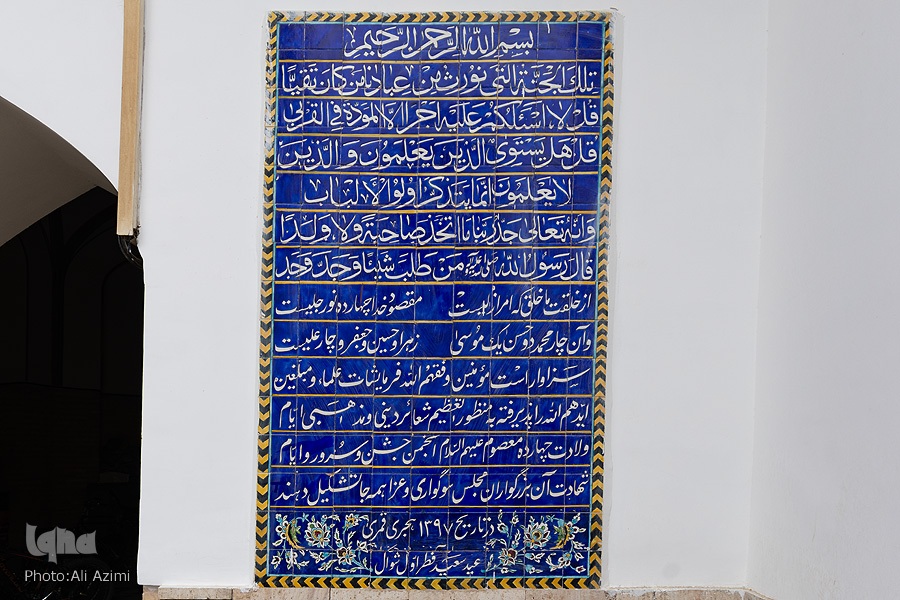 بسم الله الرحمن الرحیم
تلك الجنة التی نورث من عبادنا من کان تقیا
قل لا اسئلکم علیه اجرا الا المودة فی القربی
قل هل یستوی الذین یعلمون والذین
لا یعلمون انما یتذکر اولوا الالباب
وانه تعالی جد ربنا ما اتخذ صاحبة ولا ولدا
قال رسول الله ﷺ من طلب شیئا وجد وجد
از خلقت ما خلق که امر ازلیست مقصود خدا چهارده نور جلیست
وآن چار محمد دو حسن یک موسی زهرا و حسین و جعفر و چار علیست
سزاوار است مؤمنین وفقهم الله فرمایشات علماء و مبلغین
ایدهم الله را پذیرفته به منظور تعظیم شعائر دینی و مذهبی ایام
ولادت چهارده معصوم علیهم السلام انجمن جشن و سرور و ایام
شهادت آن بزرگواران مجلس سوگواری و عزا همه جا تشکیل دهند
در تاریخ ۱۳۹۷ هجری قمری
عید سعید فطر اول شوال
iqna
Photo:Ali Azimi